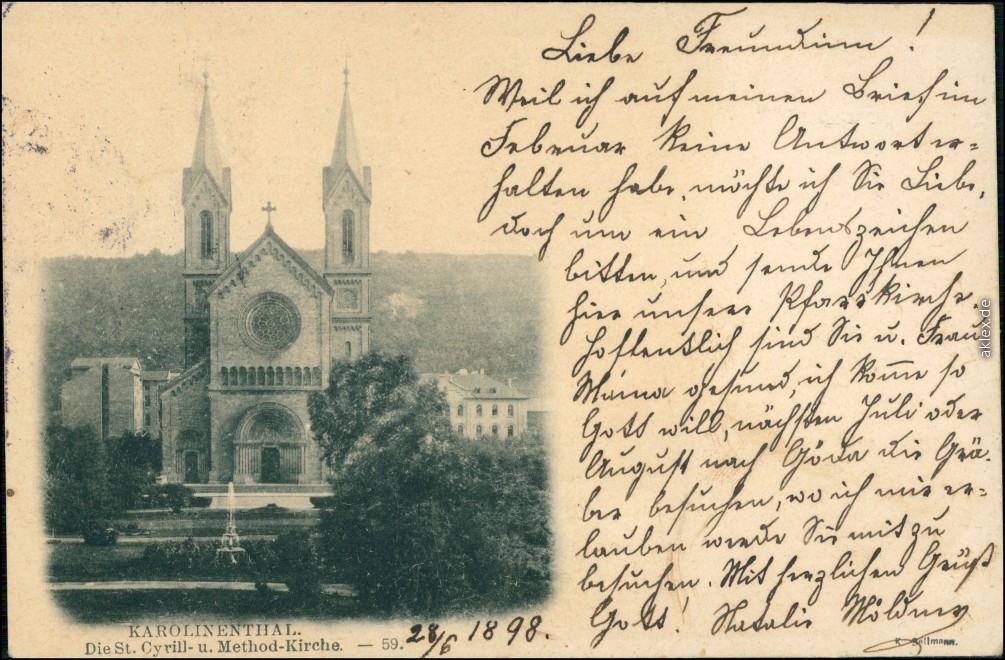 Liebe Freundinn!
Weil ich auf meinen Brief im
Februar keine Antwort er-
halten habe, möchte ich Sie Liebe,
doch um ein Lebenszeichen
bitten, und sende Ihnen
hier unsere Pfarrkirche.
Hoffentlich sind Sie u. Frau
Mama gesund, ich kome so
Gott will, nächsten Juli oder
August nach Göda die Grä-
ber besuchen, wo ich mir er-
lauben werde Sie mit zu
besuchen. Mit herzlichen Grüß
Gott! Natalie
KAROLINENTHAL.
Die St. Cyrill- u. Method-Kirche. — 59.
28/6 1898.
K. Bellmann.
aklex.de